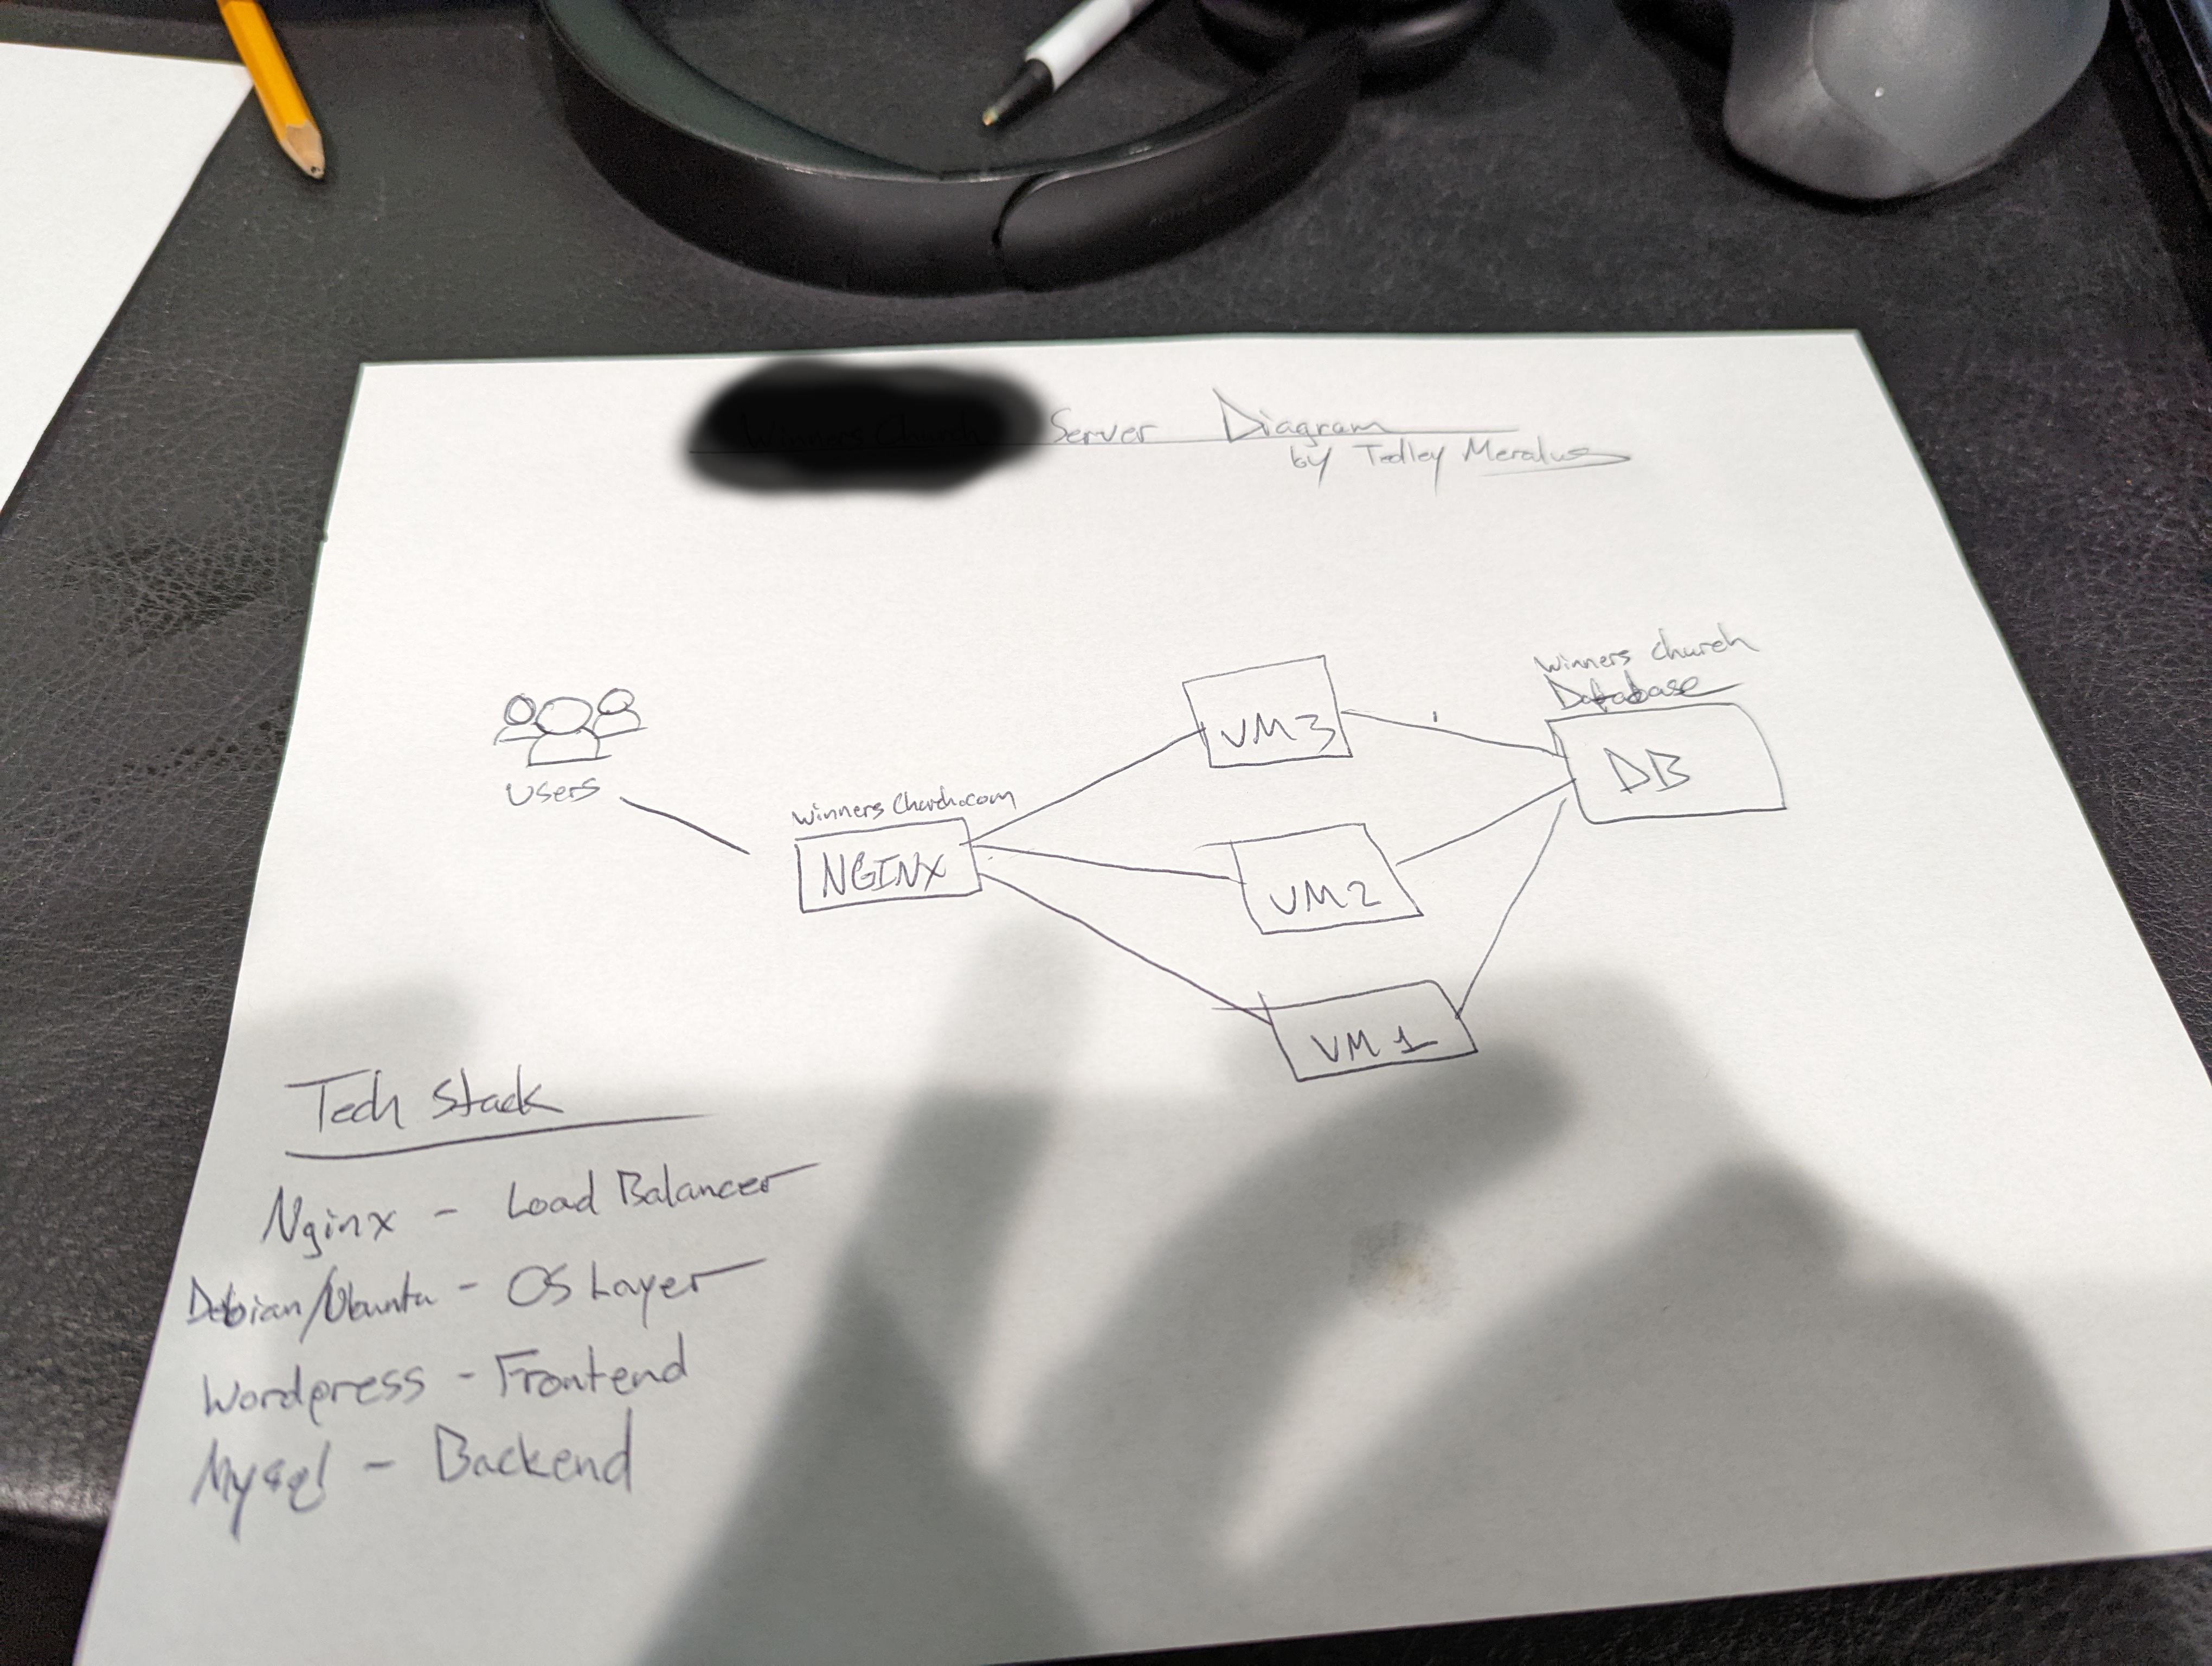 Winners Church Server Diagram
by Tedley Meralus
Users
Winners Church.com
NGINX
VM3
VM2
VM 1
Winners Church
Database
DB
Tech Stack
Nginx - Load Balancer
Debian/Ubuntu - OS Layer
Wordpress - Frontend
Mysql - Backend